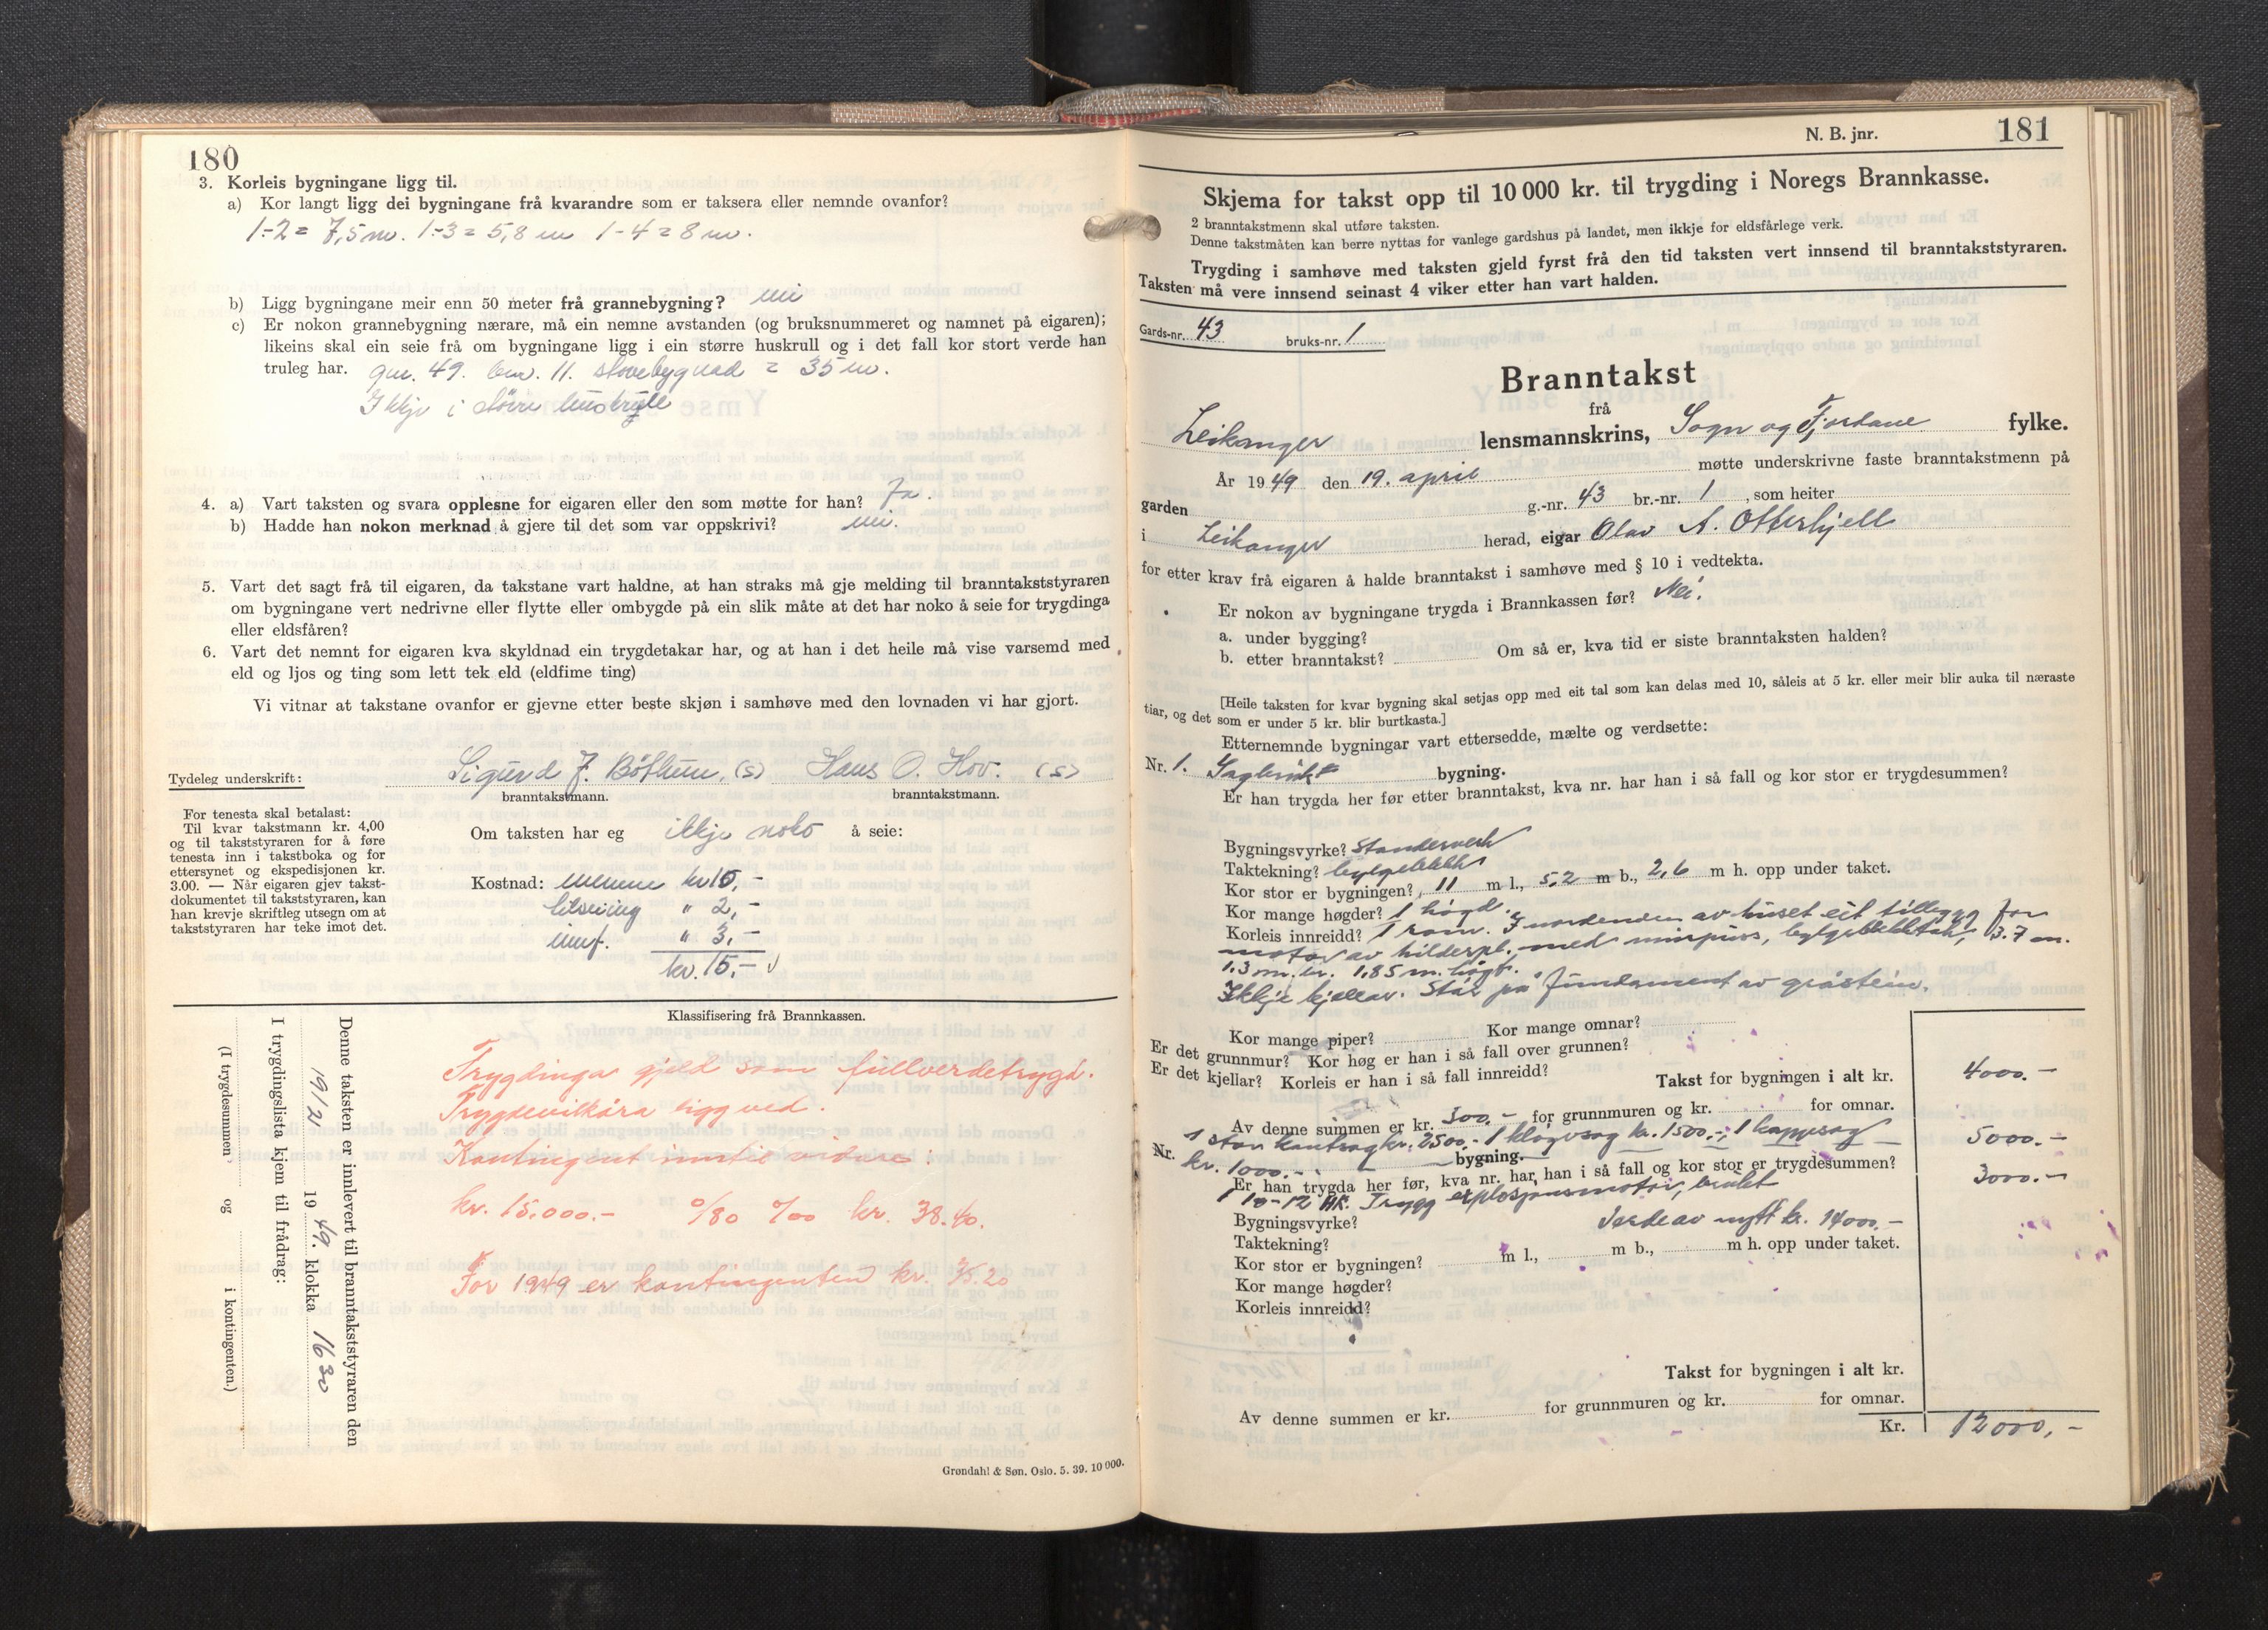 180
3. Korleis bygningane ligg til.
a) Kor langt ligg dei bygningane frå kvarandre som er taksera eller nemnde ovanfor?
1-2 = 7,5 m. 1-3 = 5,8 m 1-4 = 8 m.
b) Ligg bygningane meir enn 50 meter frå grannebygning? nei
c) Er nokon grannebygning nærare, må ein nemne avstanden (og bruksnummeret og namnet på eigaren);
likeins skal ein seie frå om bygningane ligg i ein større huskrull og i det fall kor stort verde han
truleg har. gnr. 49. bnr. 11. stovebygnad = 35 m.
Ikkje i större huskrull
4. a) Vart taksten og svara opplesne for eigaren eller den som møtte for han? Ja.
b) Hadde han nokon merknad å gjere til det som var oppskrivi? nei.
5. Vart det sagt frå til eigaren, da takstane vart haldne, at han straks må gje melding til branntakststyraren
om bygningane vert nedrivne eller flytte eller ombygde på ein slik måte at det har noko å seie for trygdinga
eller eldsfåren?
6. Vart det nemnt for eigaren kva skyldnad ein trygdetakar har, og at han i det heile må vise varsemd med
eld og ljos og ting som lett tek eld (eldfime ting)
Vi vitnar at takstane ovanfor er gjevne etter beste skjøn i samhøve med den lovnaden vi har gjort.
Tydeleg underskrift: Sigurd J. Böthun. (s) Hans O. Hov. (s)
branntakstmann. branntakstmann.
For tenesta skal betalast:
Til kvar takstmann kr. 4,00
og til takststyraren for å føre
tenesta inn i takstboka og for
ettersynet og ekspedisjonen kr.
3.00. — Når eigaren gjev takst-
dokumentet til takststyraren, kan
han krevje skriftleg utsegn om at
takststyraren har teke imot det.
Om taksten har eg ikkje noko å seie:
Kostnad: mennene kr 10,-
tilseiing " 2,-
innf. " 3,-
kr. 15,-
Klassifisering frå Brannkassen.
Trygdinga gjeld som fullverdetrygd.
Trygdevilkåra ligg ved.
Kontingent inntil vidare:
kr. 15.000.- ‰ kr. 38.40.
For 1949 er kontingenten kr. 35.20
Denne taksten er innlevert til branntakststyraren den
19/2 1949. klokka 16 30
I trygdingslista kjem til frådrag:
(I trygdesummen og i kontingenten.)
Grøndahl & Søn. Oslo. 5. 39. 10 000.
N. B. jnr. 181
Skjema for takst opp til 10 000 kr. til trygding i Noregs Brannkasse.
2 branntakstmenn skal utføre taksten.
Denne takstmåten kan berre nyttas for vanlege gardshus på landet, men ikkje for eldsfårlege verk.
Trygding i samhøve med taksten gjeld fyrst frå den tid taksten vert innsend til branntakststyraren.
Taksten må vere innsend seinast 4 viker etter han vart halden.
Gards-nr. 43 bruks-nr. 1
Branntakst
frå
Leikanger lensmannskrins, Sogn og Fjordane fylke.
År 1949 den 19. april møtte underskrivne faste branntakstmenn på
garden g.-nr. 43 br.-nr. 1, som heiter
i Leikanger herad, eigar Olav A. Otterhjell
for etter krav frå eigaren å halde branntakst i samhøve med § 10 i vedtekta.
Er nokon av bygningane trygda i Brannkassen før? Nei.
a. under bygging?
b. etter branntakst? Om så er, kva tid er siste branntaksten halden?
[Heile taksten for kvar bygning skal setjas opp med eit tal som kan delas med 10, såleis at 5 kr. eller meir blir auka til næraste
tiar, og det som er under 5 kr. blir burtkasta.]
Etternemnde bygningar vart ettersedde, mælte og verdsette:
Nr. 1. Sagbruks bygning.
Er han trygda her før etter branntakst, kva nr. har han i så fall og kor stor er trygdesummen?
Bygningsvyrke? Standerverk
Taktekning? bylgjeblekk
Kor stor er bygningen? 11 m l., 5,2 m b., 2,6 m h. opp under taket.
Kor mange høgder? 1 högd.
Korleis innreidd? 1 rom. I nordenden av huset eit tillegg for
motor av hilderpl. med murpuss, bylgjeblekktak, 3.7 m.
1,3 m. br. 1,85 m. högt.
Ikkje kjellar. Står på fundament av gråstein.
Kor mange piper? Kor mange omnar?
Er det grunnmur? Kor høg er han i så fall over grunnen?
Er det kjellar? Korleis er han i så fall innreidd?
Takst for bygningen i alt kr. 4000.-
Av denne summen er kr. 300.- for grunnmuren og kr. for omnar.
1 stor kantsag kr. 2500.- 1 klögvsag kr. 1500.-, 1 kappsag 5000.-
Nr. kr. 1000.- bygning.
Er han trygda her før, kva nr. har han i så fall og kor stor er trygdesummen? 3000.-
1 10-12 HK. Trygg explosjonsmotor, brukt
Bygningsvyrke? Verde av nytt kr. 14000.-
Taktekning?
Kor stor er bygningen? m l., m b., m h. opp under taket.
Kor mange høgder?
Korleis innreidd?
Takst for bygningen i alt kr.
Av denne summen er kr. for grunnmuren og kr. for omnar.
Kr. 12000,-